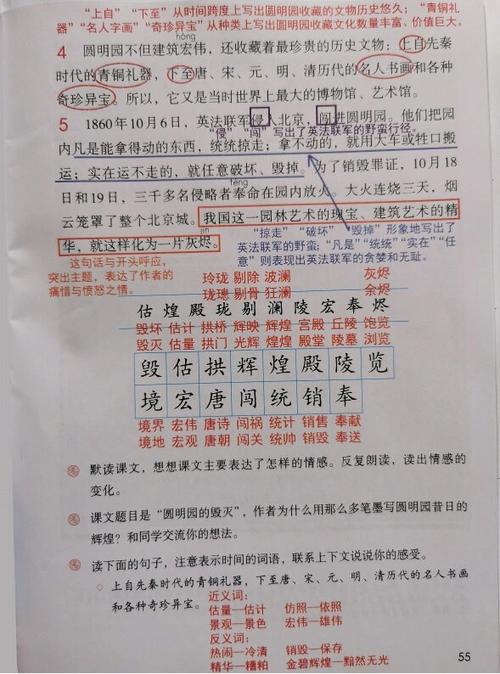 “上自”“下至”从时间跨度上写出圆明园收藏的文物历史悠久；“青铜礼
器”“名人字画”“奇珍异宝”从种类上写出圆明园收藏文化数量丰富、价值巨大。
hóng
4 圆明园不但建筑宏伟，还收藏着最珍贵的历史文物：上自先秦
时代的青铜礼器，下至唐、宋、元、明、清历代的名人书画和各种
奇珍异宝。所以，它又是当时世界上最大的博物馆、艺术馆。
5 1860年10月6日，英法联军侵入北京，闯进圆明园。他们把园
“侵”“闯”写出了英法联军的野蛮行径。
内凡是能拿得动的东西，统统掠走；拿不动的，就用大车或牲口搬
运；实在运不走的，就任意破坏、毁掉。为了销毁罪证，10月18
fèng
日和19日，三千多名侵略者奉命在园内放火。大火连烧三天，烟
云笼罩了整个北京城。我国这一园林艺术的瑰宝、建筑艺术的精
jìn
华，就这样化为一片灰烬。
“掠走”“破坏”“毁掉”形象地写出了
英法联军的野蛮；“凡是”“统统”“实在”“任
意”则表现出英法联军的贪婪和无耻。
这句话与开头呼应，
突出主题，表达了作者的
痛惜与愤怒之情。
玲珑 剔除 波澜 灰烬
珑璁 剔骨 狂澜 余烬
估 煌 殿 珑 剔 澜 陵 宏 奉 烬
毁坏 估计 拱桥 辉映 辉煌 宫殿 丘陵 饱览
毁灭 估量 拱门 光辉 煌煌 殿堂 陵墓 浏览
毁 估 拱 辉 煌 殿 陵 览
境 宏 唐 闯 统 销 奉
境界 宏伟 唐诗 闯祸 统计 销售 奉献
境地 宏观 唐朝 闯关 统帅 销毁 奉送
默读课文，想想课文主要表达了怎样的情感。反复朗读，读出情感的
变化。
课文题目是“圆明园的毁灭”，作者为什么用那么多笔墨写圆明园昔日的
辉煌？和同学交流你的想法。
读下面的句子，注意表示时间的词语，联系上下文说说你的感受。
◇ 上自先秦时代的青铜礼器，下至唐、宋、元、明、清历代的名人书画
和各种奇珍异宝。
近义词：
估量—估计 仿照—依照
景观—景色 宏伟—雄伟
反义词：
热闹—冷清 销毁—保存
精华—糟粕 金碧辉煌—黯然无光
55